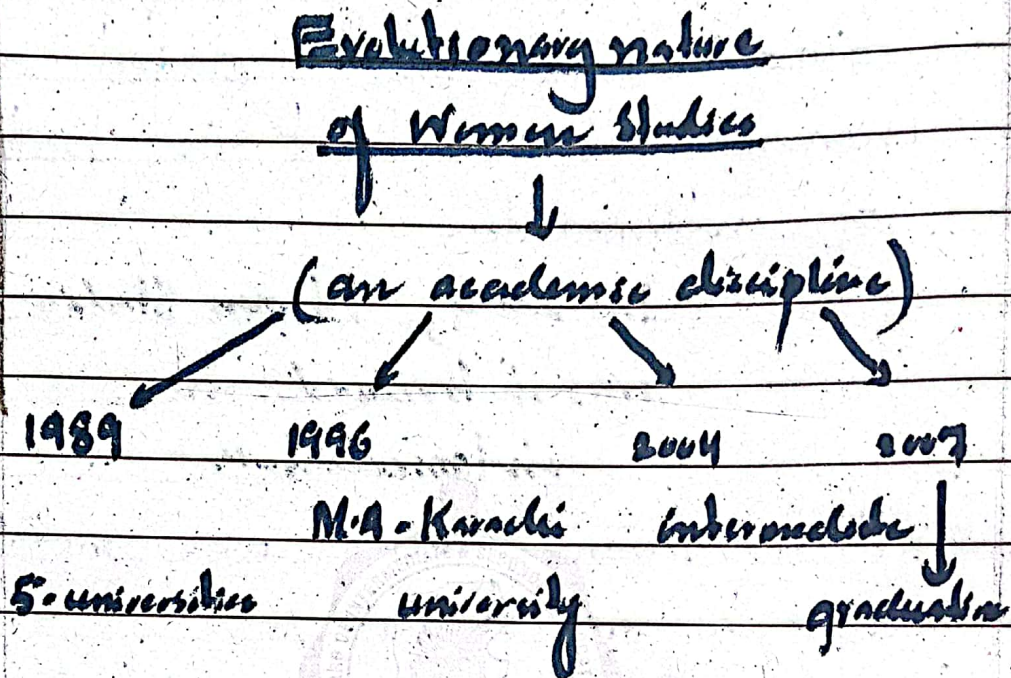 Evolutionary nature
of Women Studies
(an academic discipline)
1989 1996 2004 2007
M.A - Karachi intermediate
5-universities university graduation